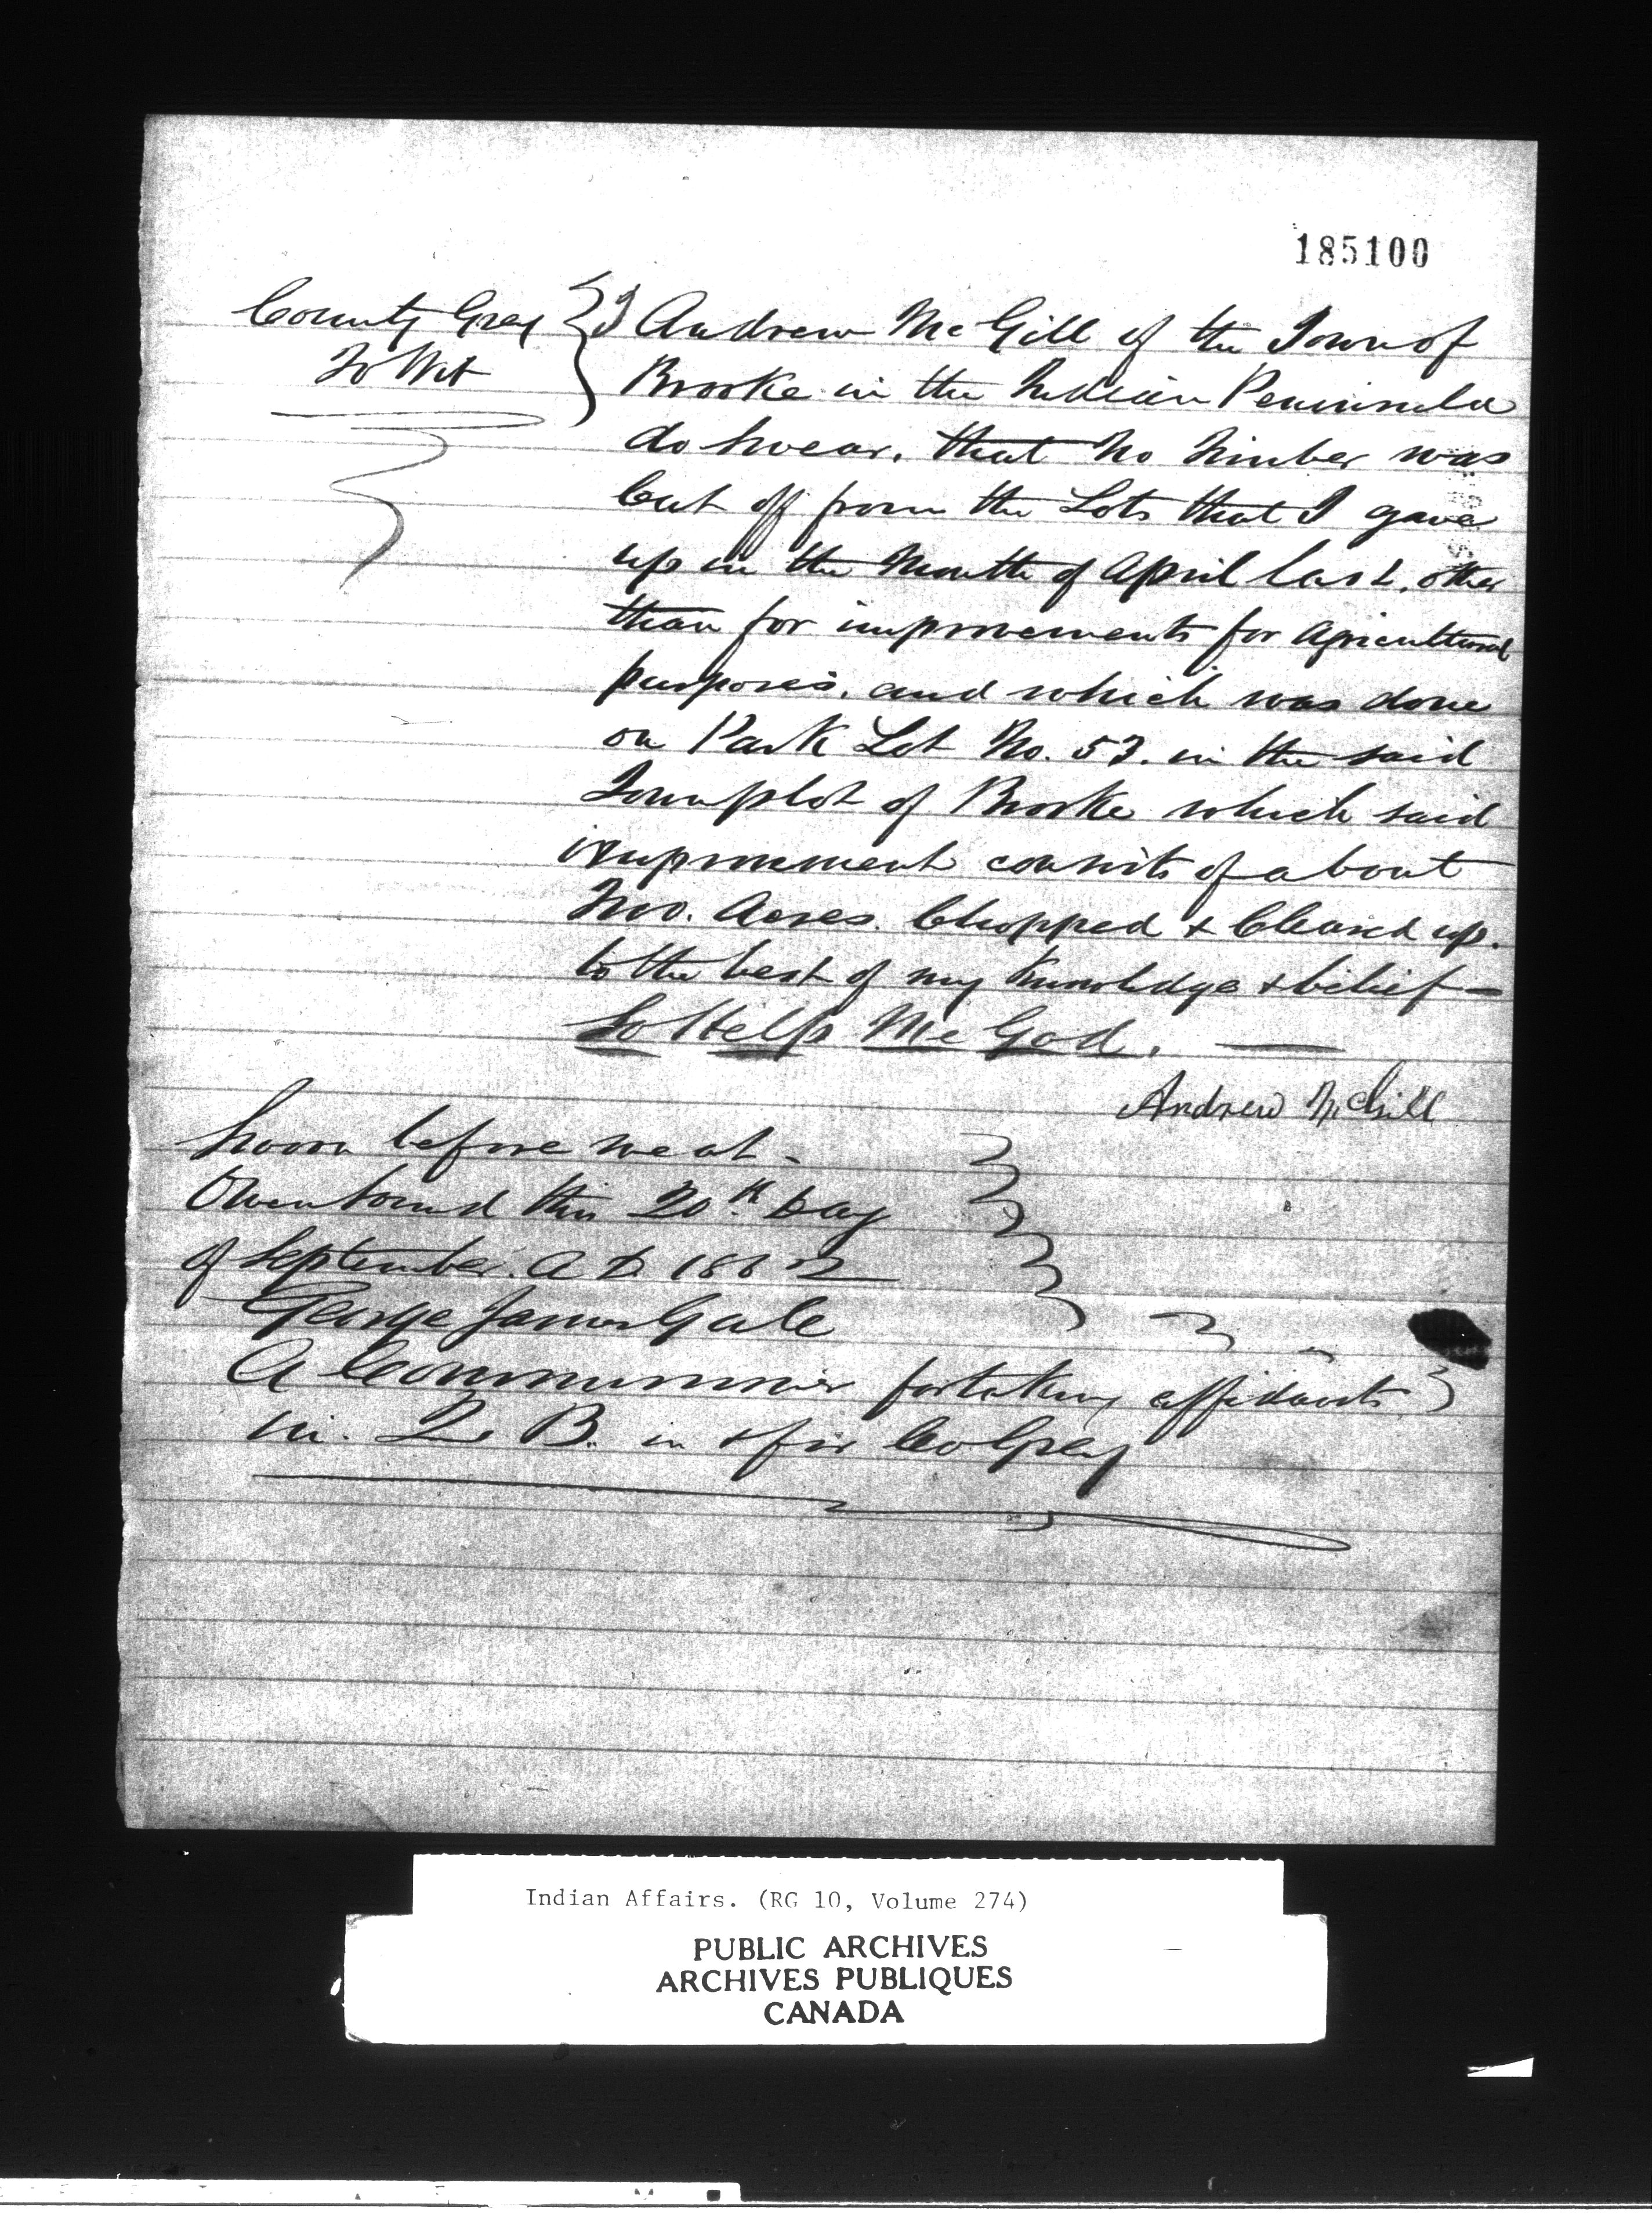 185100
County Grey
To Wit
I Andrew McGill of the Town of
Brooke in the Indian Peninsula
do Swear, that No Timber was
Cut off from the Lots that I gave
up in the Month of April last, other
than for improvements for Agricultural
purposes, and which was done
on Park Lot No. 53. in the said
Townplot of Brooke which said
improvement consists of about
Two. Acres. Chopped & Cleared up.
to the best of my Knowledge & belief -
So Help Me God.
Andrew McGill
Sworn before me at -
Owen Sound this 20th Day
of September. A D. 1862
George James Gale
A Commissioner for taking affidavits
in. Q. B. in & for Co Grey
Indian Affairs. (RG 10, Volume 274)
PUBLIC ARCHIVES
ARCHIVES PUBLIQUES
CANADA